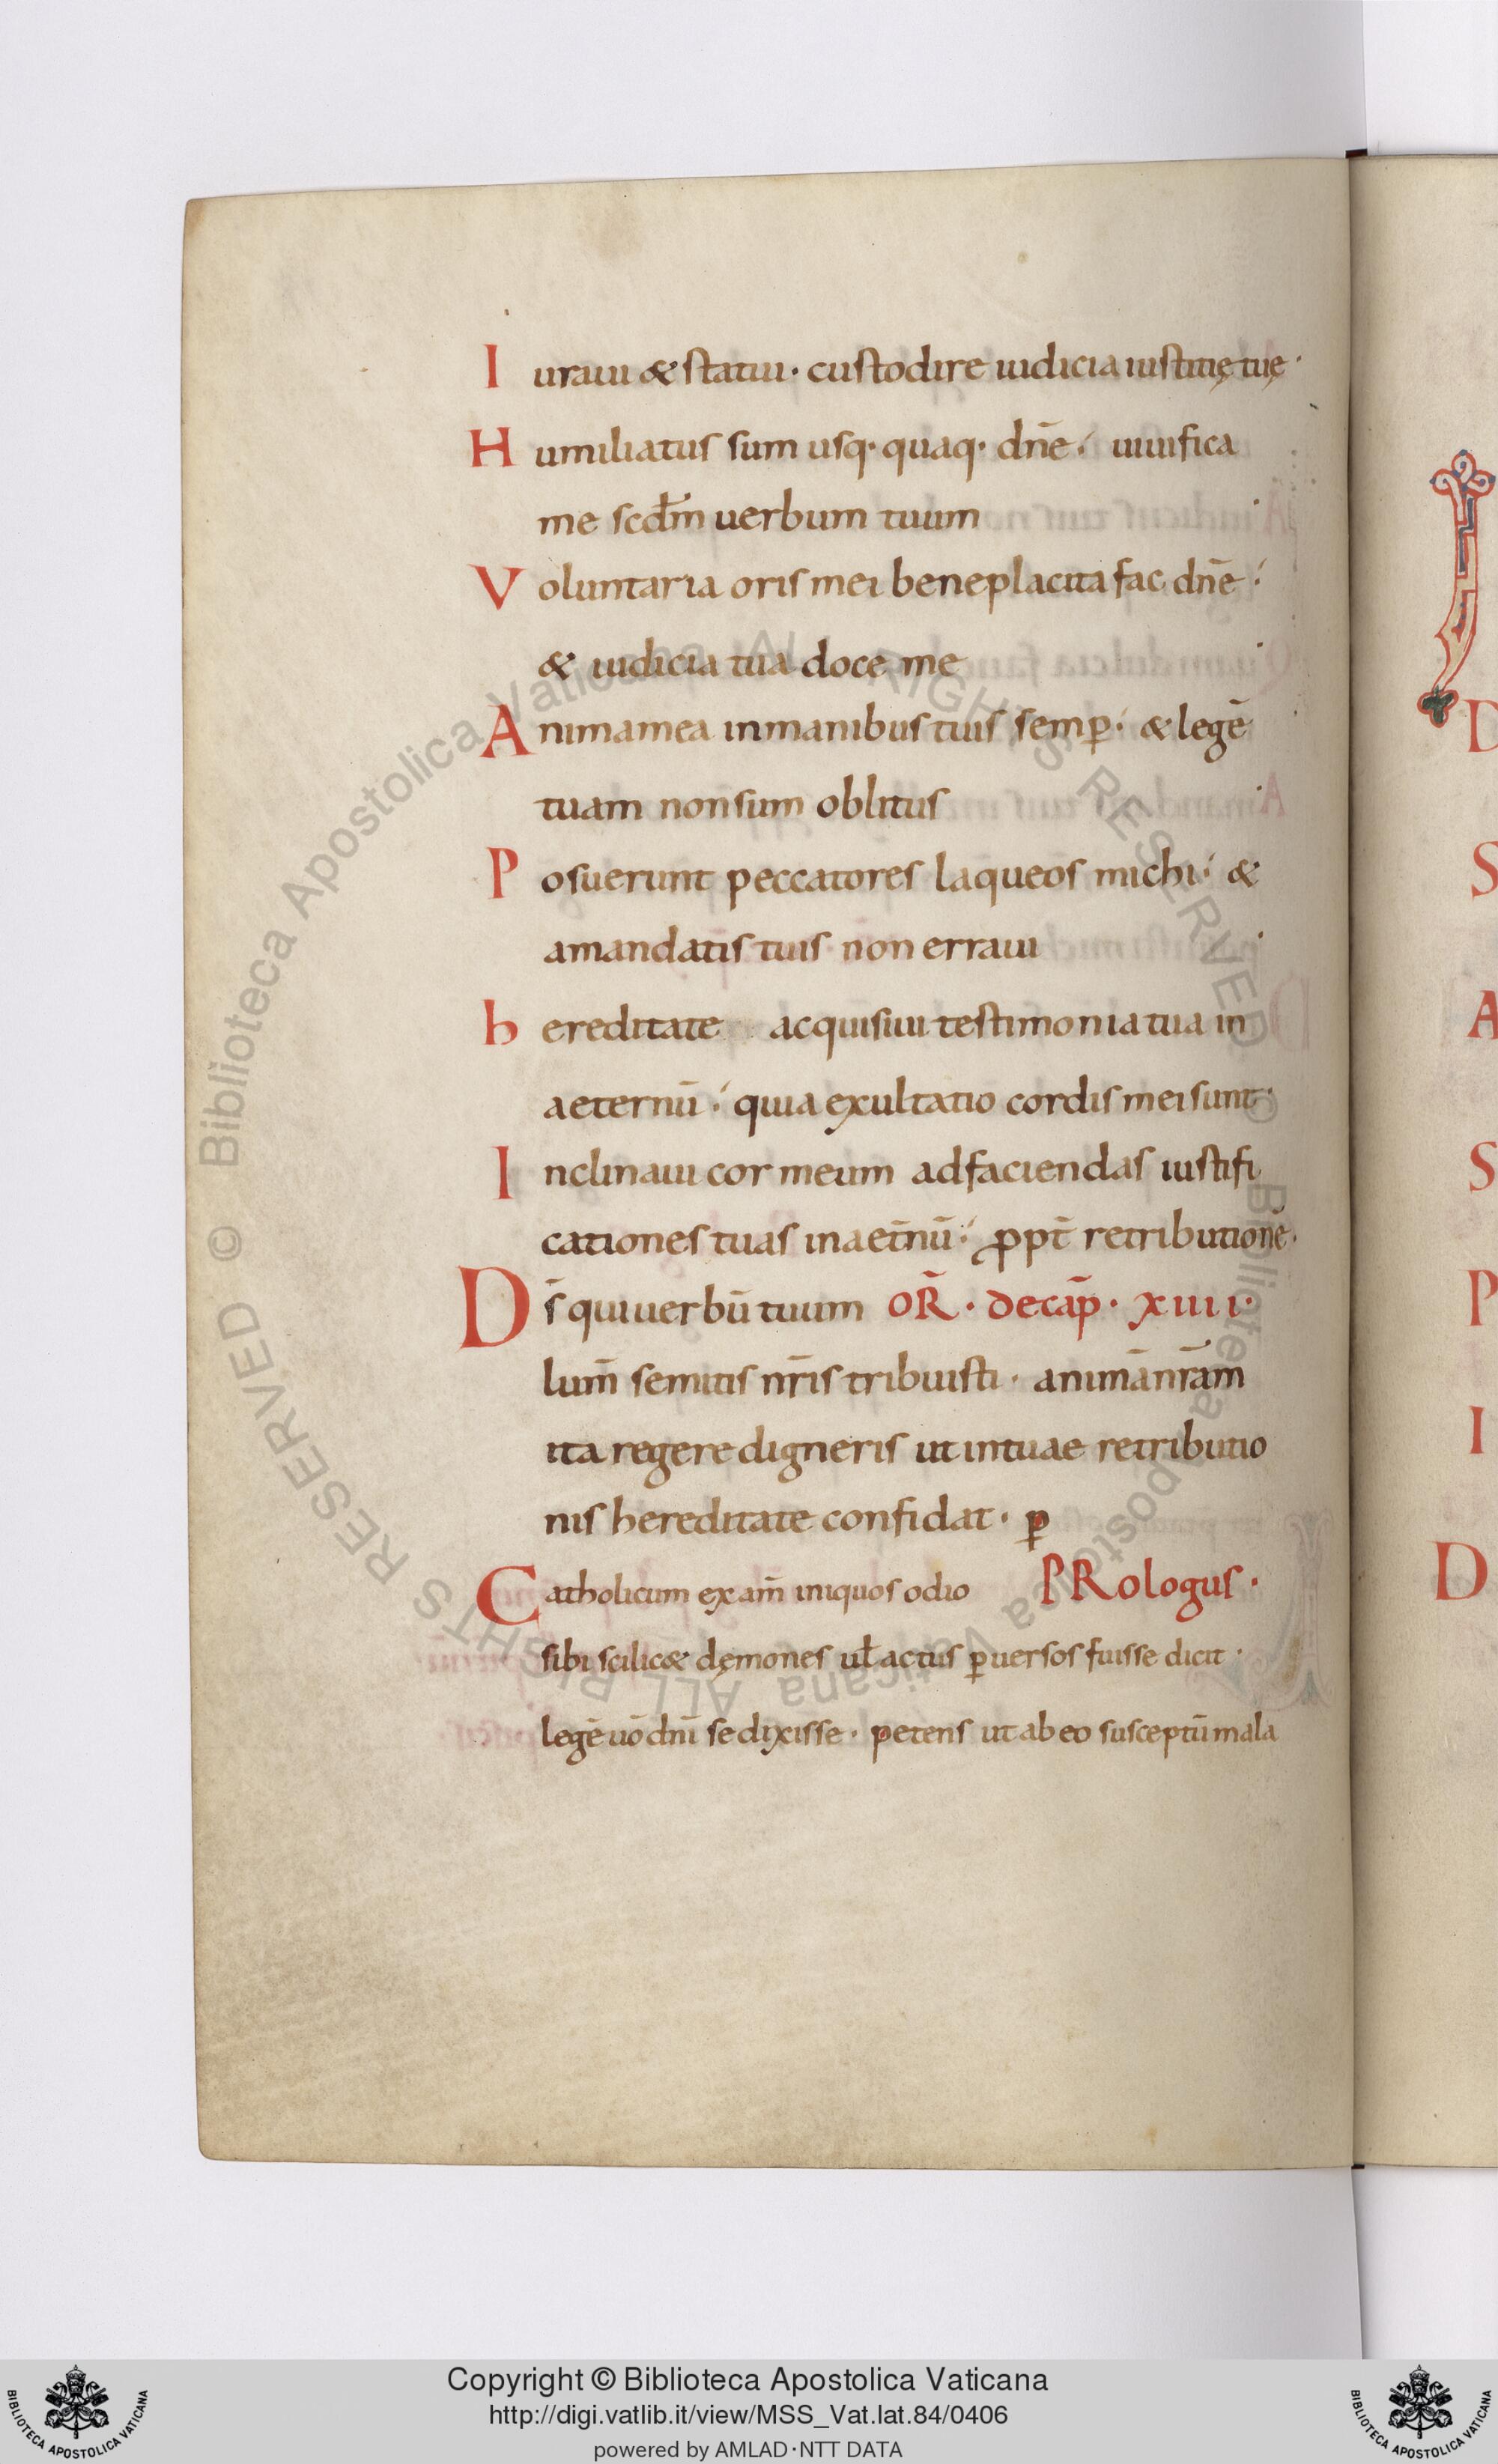 Iuraui & statui· custodire iudicia iustitię tuę·
Humiliatus sum usq· quaq· dn̄e·́ uiuifica
me scd̄m uerbum tuum
Voluntaria oris mei beneplacita fac dn̄e·́
& iudicia tua doce me
Anima mea in manibus tuis semꝑ·́ & legē
tuam non sum oblitus
Posuerunt peccatores laqueos michi·́ &
a mandatis tuis non erraui
hereditate acquisiui testimonia tua in
aeternū·́ quia exultatio cordis mei sunt·
Inclinaui cor meum ad faciendas iustifi
cationes tuas in aet̄nū·́ ꝓpt̄ retributionē·
Ds̄ qui uerbū tuum OR̄· de cap̄· xiiii·
lum̄ semitis nr̄is tribuisti· animā nr̄am
ita regere digneris ut in tuae retributio
nis hereditate confidat· ꝑ
Catholicum exam̄ iniquos odio PRologus·
sibi scilic& dęmones ul̄ actus ꝑuersos fuisse dicit·
legē uō dn̄i se dixisse· petens ut ab eo susceptū mala
D
S
A
S
P
I
D
Copyright © Biblioteca Apostolica Vaticana
http://digi.vatlib.it/view/MSS_Vat.lat.84/0406
powered by AMLAD·NTT DATA
BIBLIOTECA APOSTOLICA VATICANA
BIBLIOTECA APOSTOLICA VATICANA
© Biblioteca Apostolica Vaticana ALL RIGHTS RESERVED
© Biblioteca Apostolica Vaticana ALL RIGHTS RESERVED